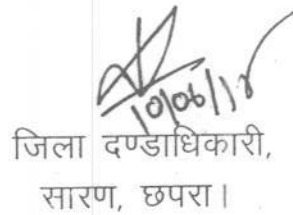 10/06/18
जिला दण्डाधिकारी,
सारण, छपरा।